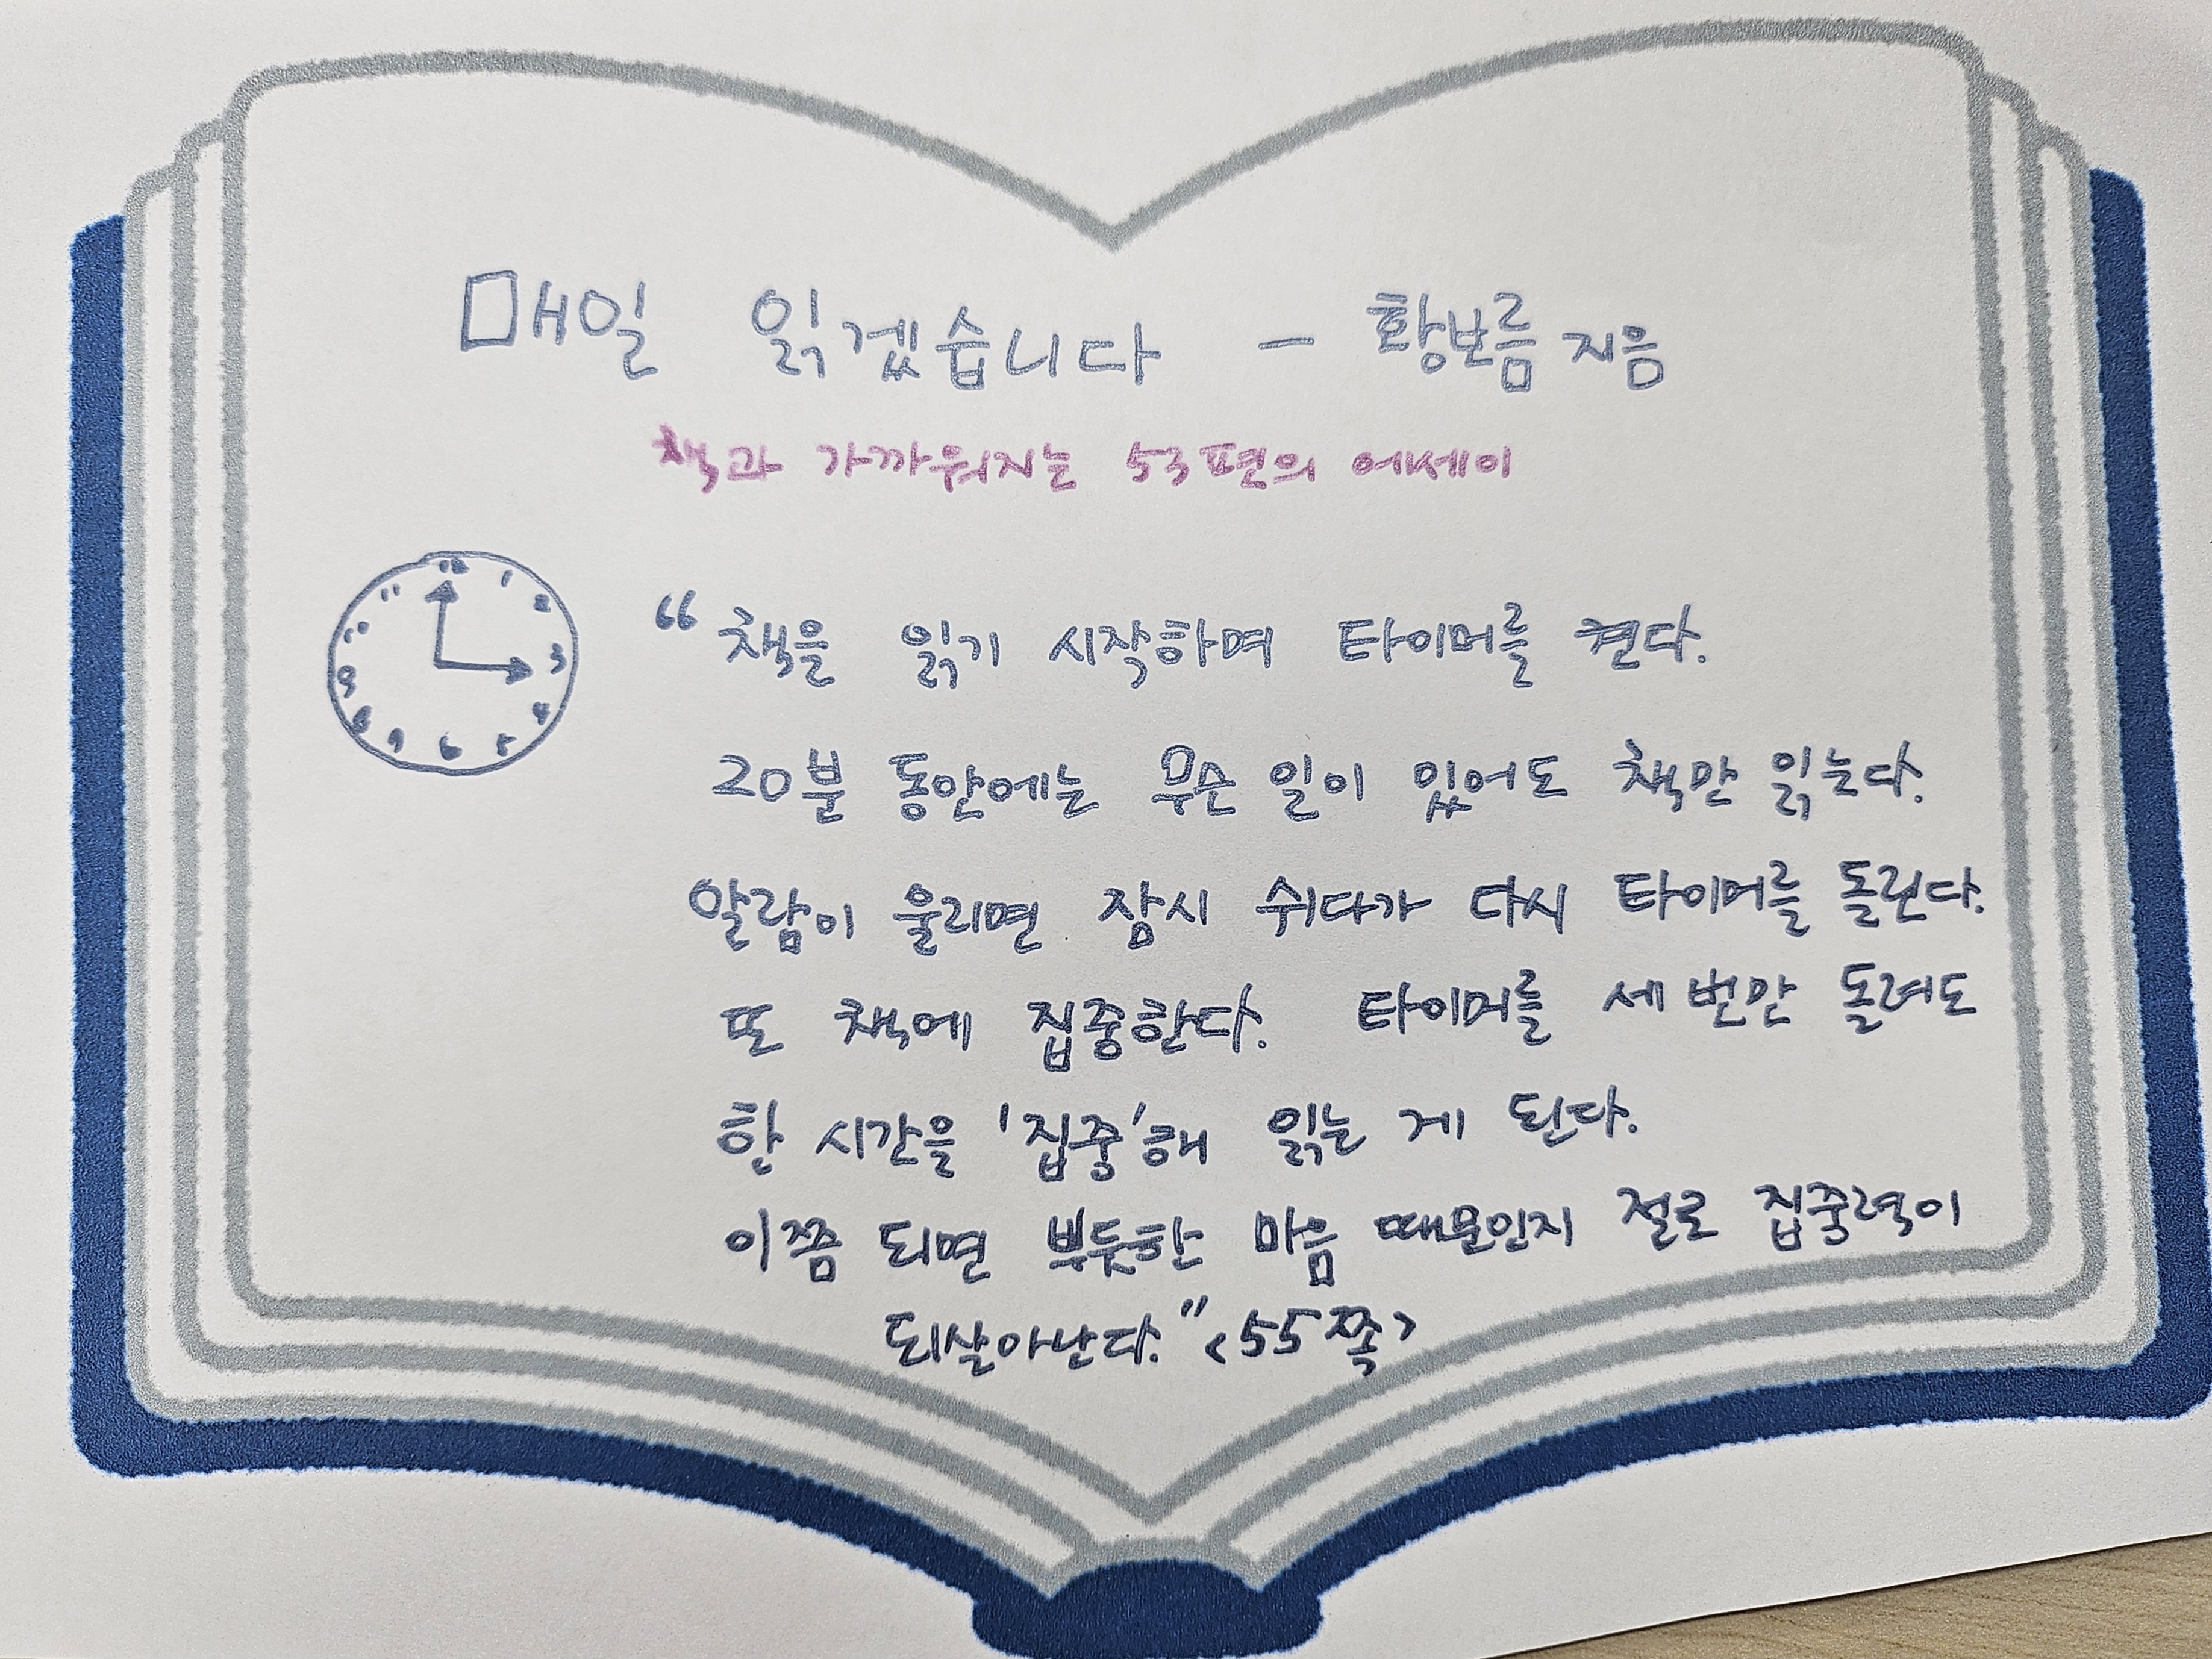 매일 읽겠습니다 - 황보름 지음
책과 가까워지는 53편의 에세이
12 1 2 3 4 5 6 7 8 9 10 11
“책을 읽기 시작하며 타이머를 켠다.
20분 동안에는 무슨 일이 있어도 책만 읽는다.
알람이 울리면 잠시 쉬다가 다시 타이머를 돌린다.
또 책에 집중한다. 타이머를 세 번만 돌려도
한 시간을 '집중'해 읽는 게 된다.
이쯤 되면 뿌듯한 마음 때문인지 절로 집중력이
되살아난다.” <55쪽>